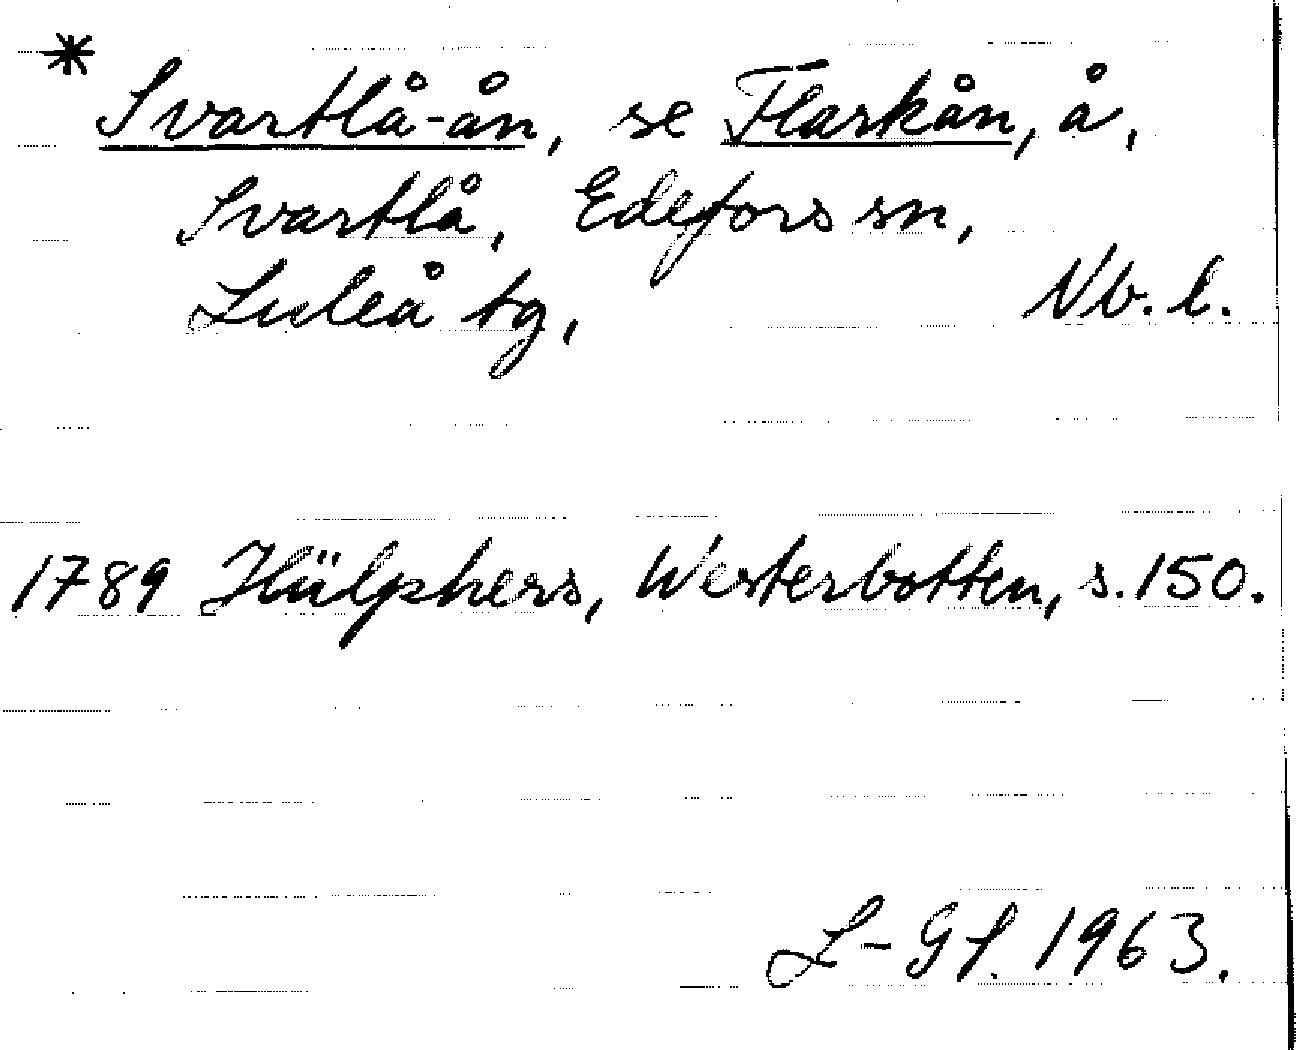 * Svartlå-ån, se Flarkån, å,
Svartlå, Edefors sn,
Luleå tg, Nb. l.
1789 Hülphers, Westerbotten, s. 150.
L-GL. 1963.